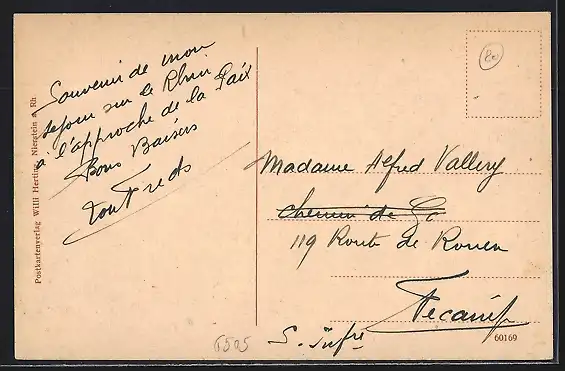 Souvenir de mon
sejour sur le Rhin
à l'approche de la Paix
Bons Baisers
Postkartenverlag Willi Herting, Nierstein a. Rh.
Madame Alfred Vallery
Chemin de
119 Route de Rouen
Fecamp
S. Infre
60169
6505